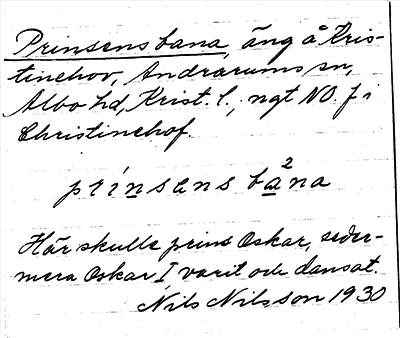 Prinsens bana, äng å Kris-
tinehov, Andrarums sn,
Albo hd, Krist. l., ngt NO. f i
Christinehof.
prínsens ba²na
Här skulle prins Oskar, seder-
mera Oskar I varit och dansat.
Nils Nilsson 1930